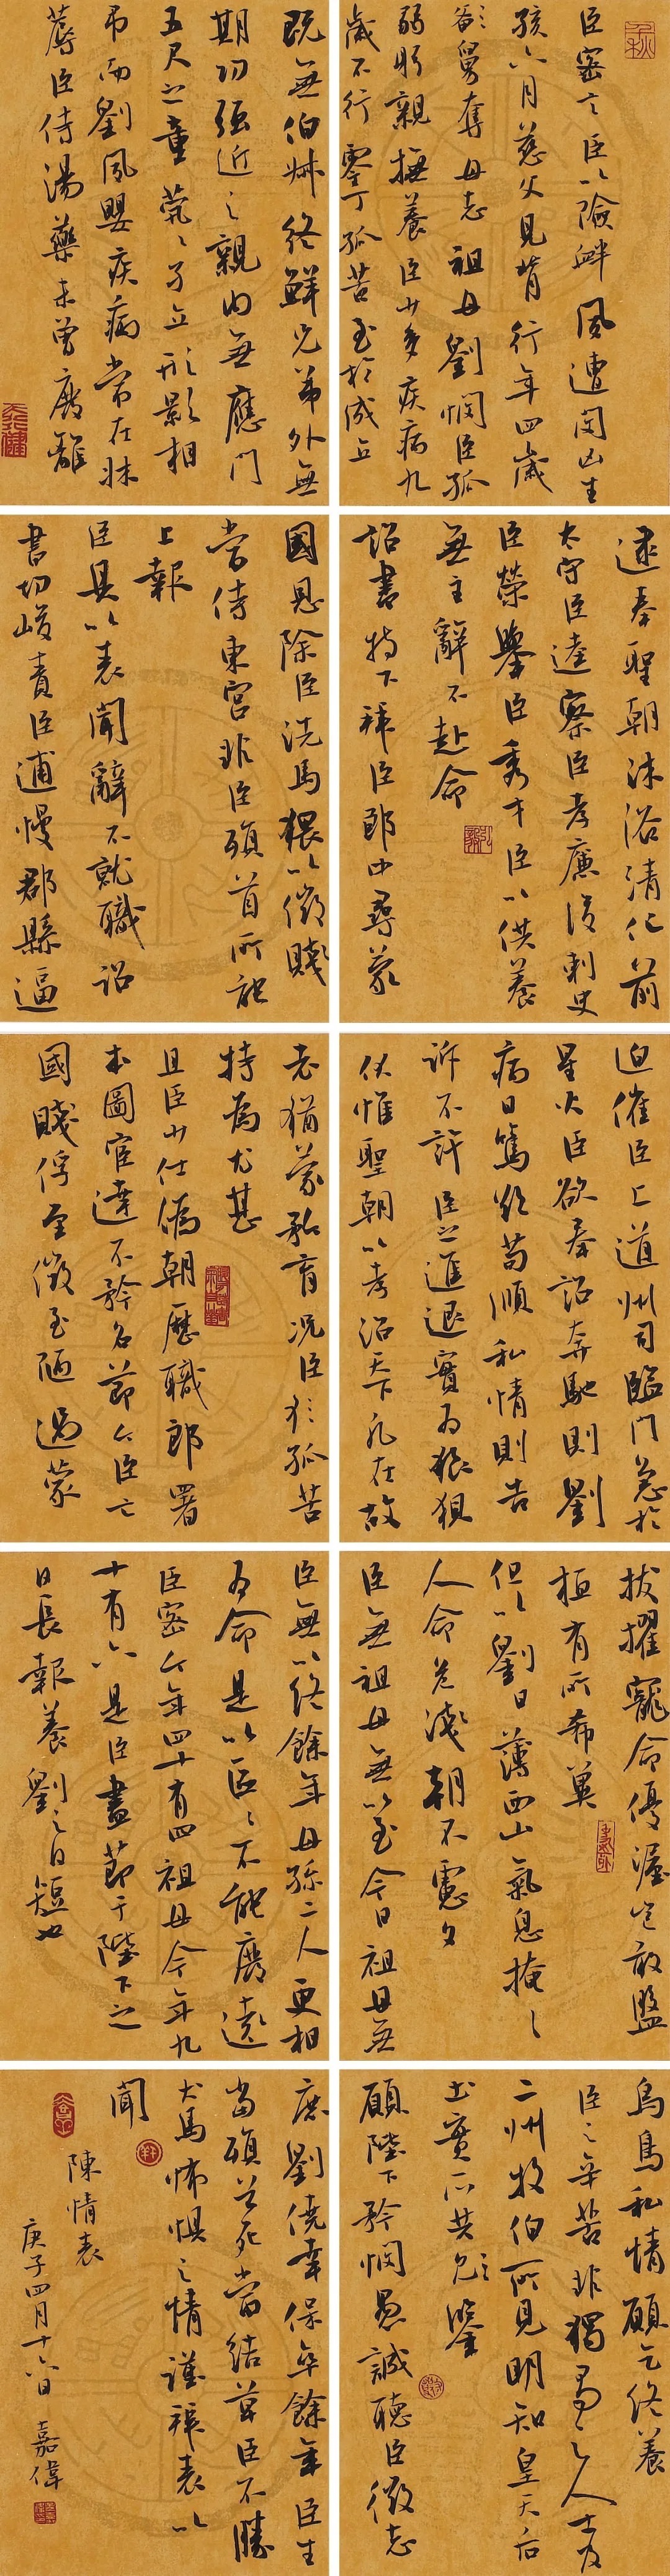 臣密言臣以險釁夙遭閔凶生
孩六月慈父見背行年四歲
舅奪母志祖母劉憫臣孤
弱躬親撫養臣少多疾病九
歲不行零丁孤苦至於成立
既無伯叔終鮮兄弟外無
期功強近之親內無應門
五尺之童煢〻孑立形影相
吊而劉夙嬰疾病常在床
蓐臣侍湯藥未曾廢離
逮奉聖朝沐浴清化前
太守臣逵察臣孝廉後刺史
臣榮舉臣秀才臣以供養
無主辭不赴命
詔書特下拜臣郎中尋蒙
國恩除臣洗馬猥以微賤
當侍東宮非臣隕首所能
上報
臣具以表聞辭不就職詔
書切峻責臣逋慢郡縣逼
迫催臣上道州司臨門急於
星火臣欲奉詔奔馳則劉
病日篤欲苟順私情則告
訴不許臣之進退實為狼狽
伏惟聖朝以孝治天下凡在故
老猶蒙矜育況臣孤苦
特為尤甚
且臣少仕偽朝歷職郎署
本圖宦達不矜名節今臣亡
國賤俘至微至陋過蒙
拔擢寵命優渥豈敢盤
桓有所希冀
但以劉日薄西山氣息掩〻
人命危淺朝不慮夕
臣無祖母無以至今日祖母無
臣無以終餘年母孫二人更相
為命是以區〻不能廢遠
臣密今年四十有四祖母今年九
十有六是臣盡節于陛下之
日長報養劉之日短也
烏鳥私情願乞終養
臣之辛苦非獨蜀之人士及
二州牧伯所見明知皇天后
土實所共鑒
願陛下矜憫愚誠聽臣微志
庶劉僥幸保卒餘年臣生
當隕首死當結草臣不勝
犬馬怖懼之情謹拜表以
聞
陳情表
庚子四月十六日 嘉偉